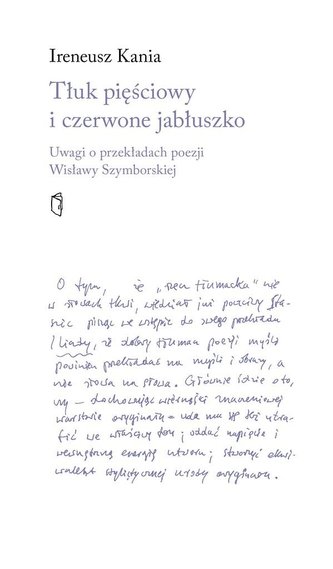 Ireneusz Kania
Tłuk pięściowy
i czerwone jabłuszko
Uwagi o przekładach poezji
Wisławy Szymborskiej
O tym, że „rzecz tłumacka” nie
w słowach tkwi, wiedział już poczciwy Sta-
nic pisząc we wstępie do swego przekładu
Iliady, że dobry tłumacz poezji myśli
powinien przekładać na myśli i obrazy, a
nie słowa na słowa. Głównie idzie o to,
czy – zachowując wierność znaczeniowej
warstwie oryginału – uda mu się też utra-
fić we właściwy ton; oddać napięcie i
wewnętrzną energię utworu; stworzyć ekwi-
walent stylistycznej urody oryginału.